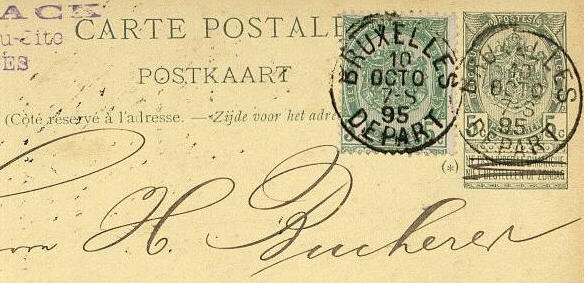 ACK
u-Cite
ES
CARTE POSTALE
POSTKAART
(Côté réservé à l'adresse. — Zijde voor het adre
BRUXELLES
10
OCTO
7-S
95
DEPART
POSTES
BRUXELLES
10
OCTO
7-S
95
DEPART
5 C 5 C
(*)
H. Bucherer